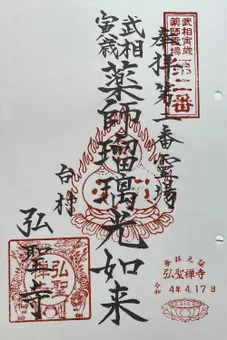 武相寅歳
薬師霊場
第二番
奉拝第二番霊場
武相
寅歳
薬師瑠璃光如来
白村
弘聖寺
弘聖禅寺
令和
4年4.17日